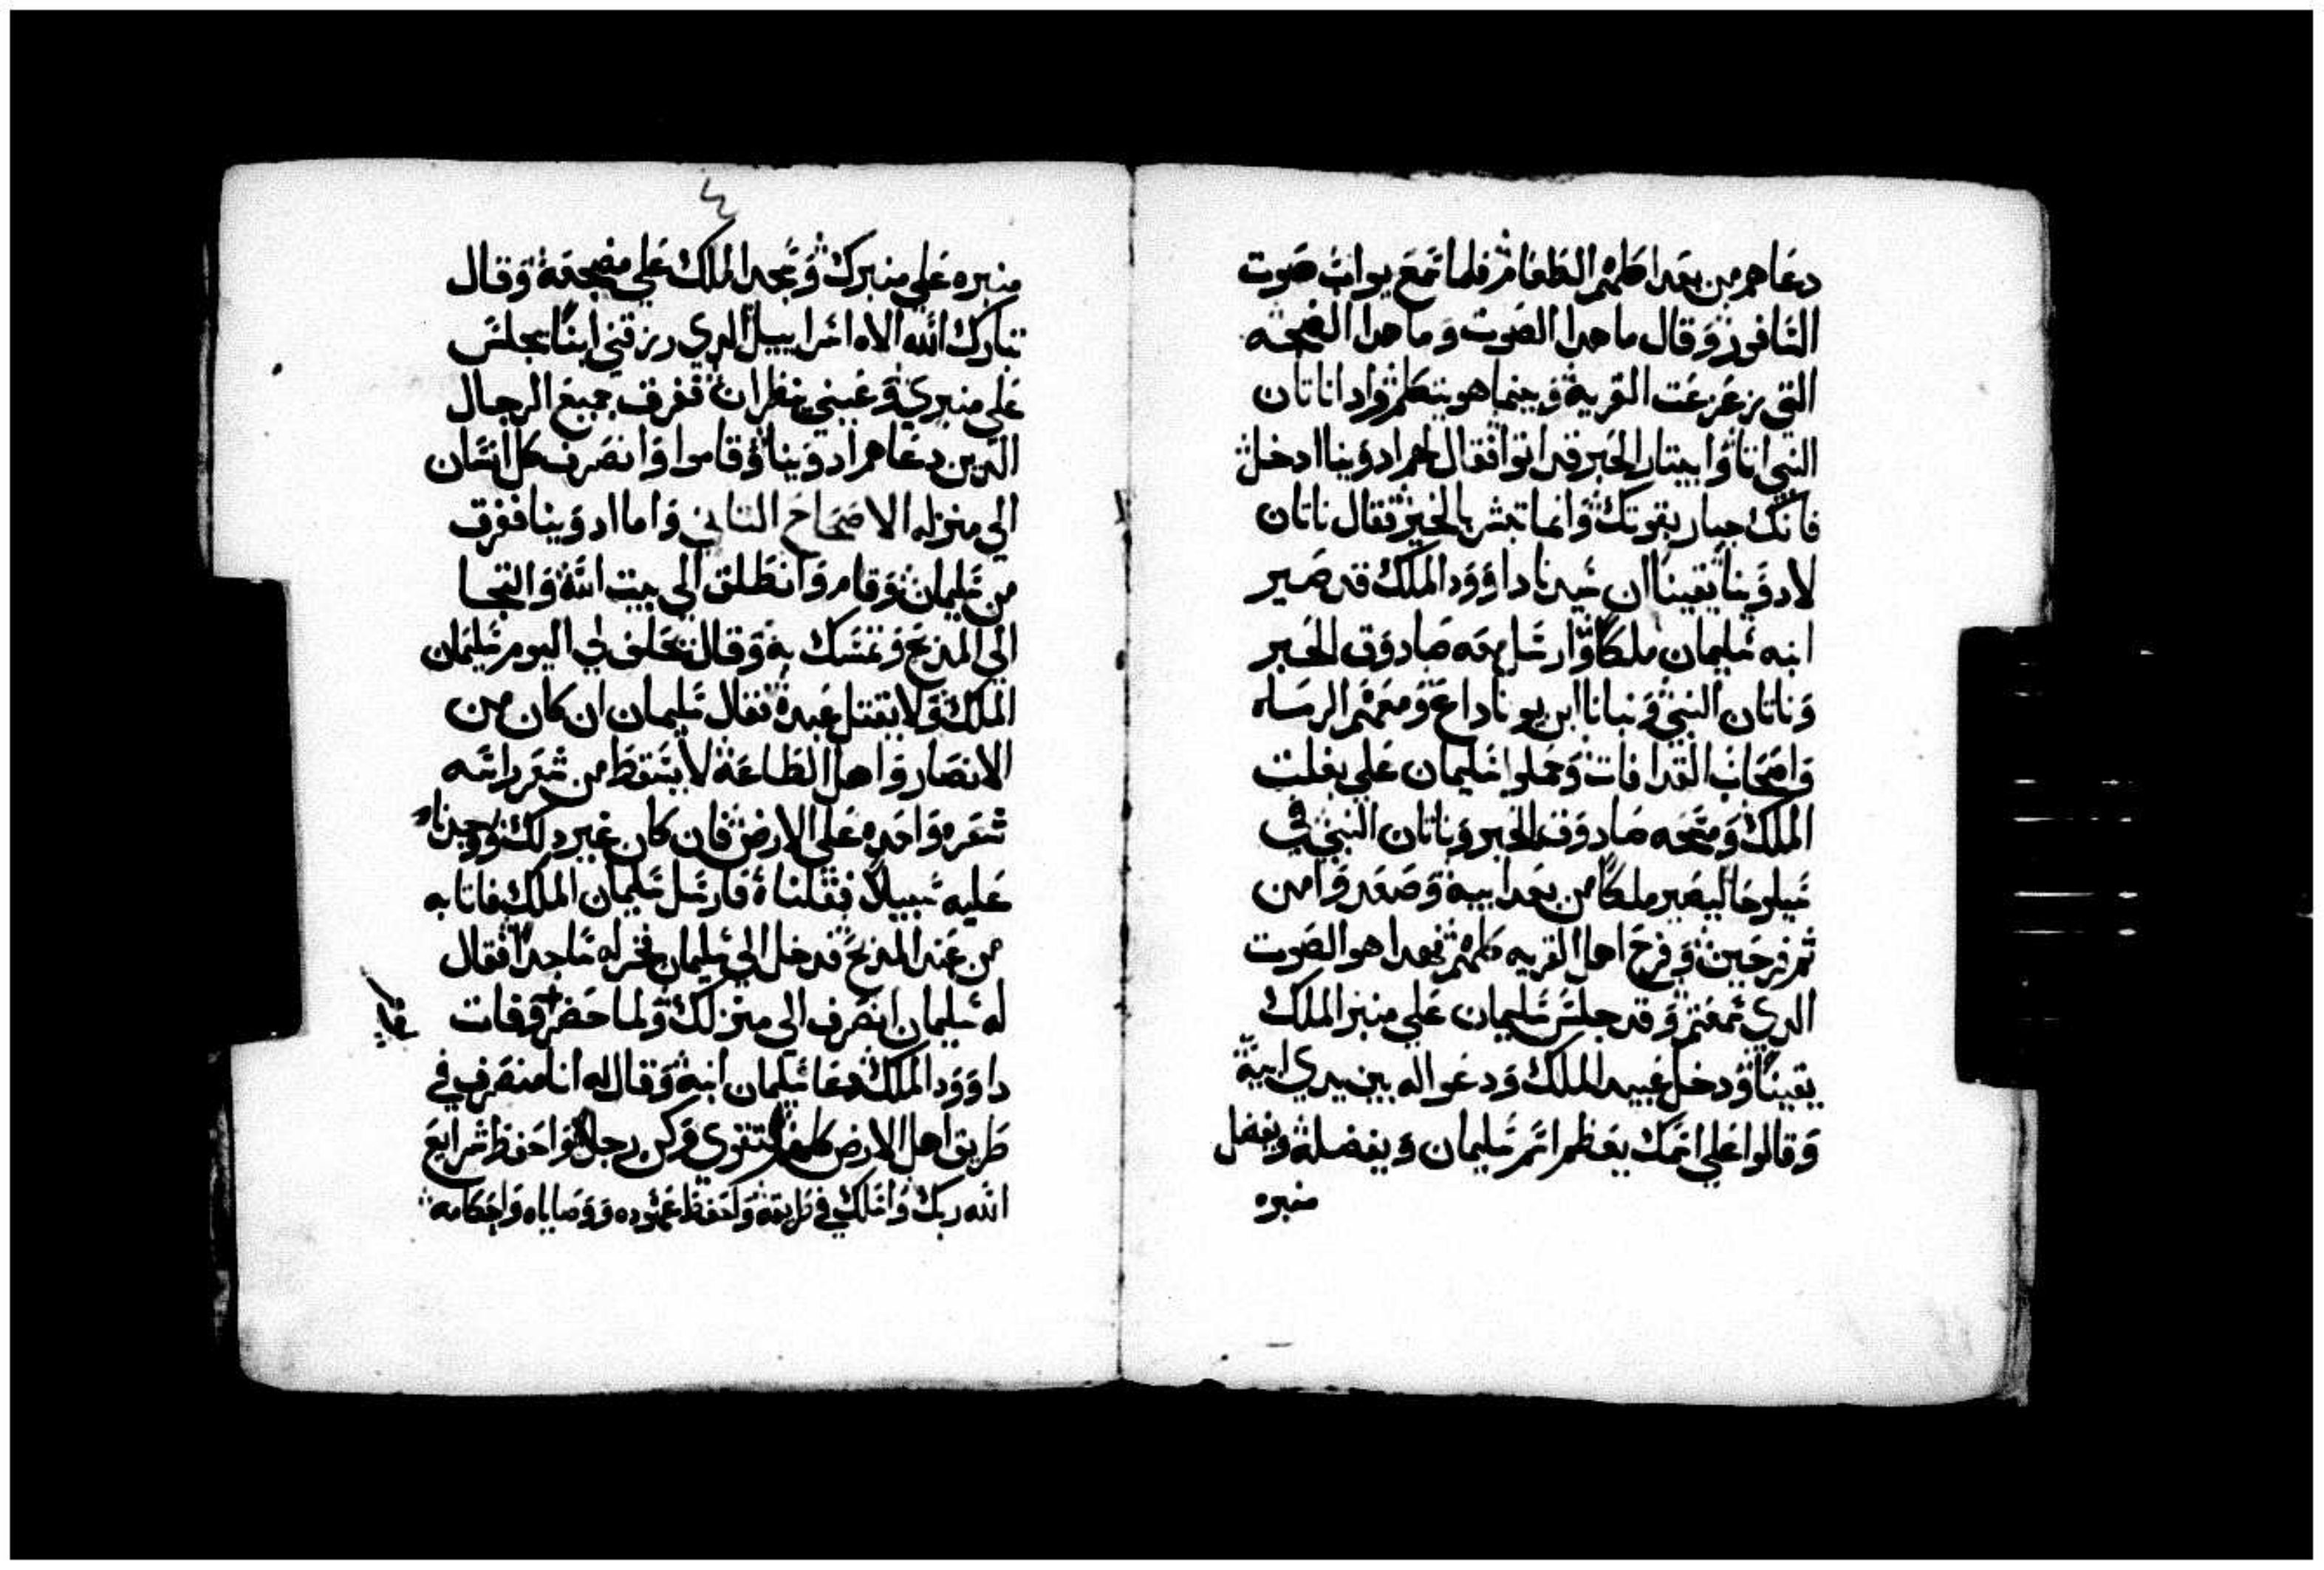 دعاهم من بعد اكلهم الطعام فلما سمع يواب صوت
السافور وقال ما هدا الصوت وما هدا الضجه
التي زعزعت القريه وبينما هو يتكلم وادا ناتان
النبي اتا وابيتار الحبر قد اتوا فقال لهم ادونيا ادخل
فانك جبار بقوتك وانما تبشر بالخير فقال ناتان
لادونيا يقينا ان سيدنا داوود الملك قد صير
ابنه سليمان ملكا وارسل معه صادوق الحبر
وناتان النبي وبنيانا ابن يوناداع ومعهم الرساه
واصحاب القدافات وحملوا سليمان على بغلت
الملك ومسحه صادوق الحبر وناتان النبي في
سيلوحا ليصير ملكا من بعد ابيه وصعدوا من
ثم فرحين وفرح اهل القريه كلهم فهدا هو الصوت
الدي سمعتم وقد جلس سليمان على منبر الملك
يقينا ودخل عبيد الملك ودعوا له بين يدي ابيه
وقالوا على اسمك يعظم اسم سليمان ويفضله ويفضل
منبره
منبره على منبرك وسجد الملك على مضجعه وقال
تبارك الله الاه اسراييل الدي رزقني ابنا يجلس
على منبري وعيني ينظران ففرق جميع الرجال
الدين دعاهم ادونيا وقاموا وانصرف كل انسان
الى منزله الاصحاح التاني واما ادونيا ففرق
من سليمان وقام وانطلق الى بيت الله والتجا
الى المدبح وتمسك به وقال يحلف لي اليوم سليمان
الملك ولا يقتل عبده فقال سليمان ان كان من
الانصار واهل الطاعه لا يسقط من شعر راسه
شعره واحده على الارض فان كان غير دلك ووجدناه
عليه سبيلا فقلناه فارسل سليمان الملك فاتا به
من عند المدبح فدخل الى سليمان فخر له ساجدا فقال
له سليمان انصرف الى منزلك ولما حضر وفات
داوود الملك دعا سليمان ابنه وقال له انا منصرف في
طريق اهل الارض كلها فتقوى وكن رجلا واحفظ شرايع
الله ربك واسلك في طريقه واحفظ عهوده ووصاياه واحكامه